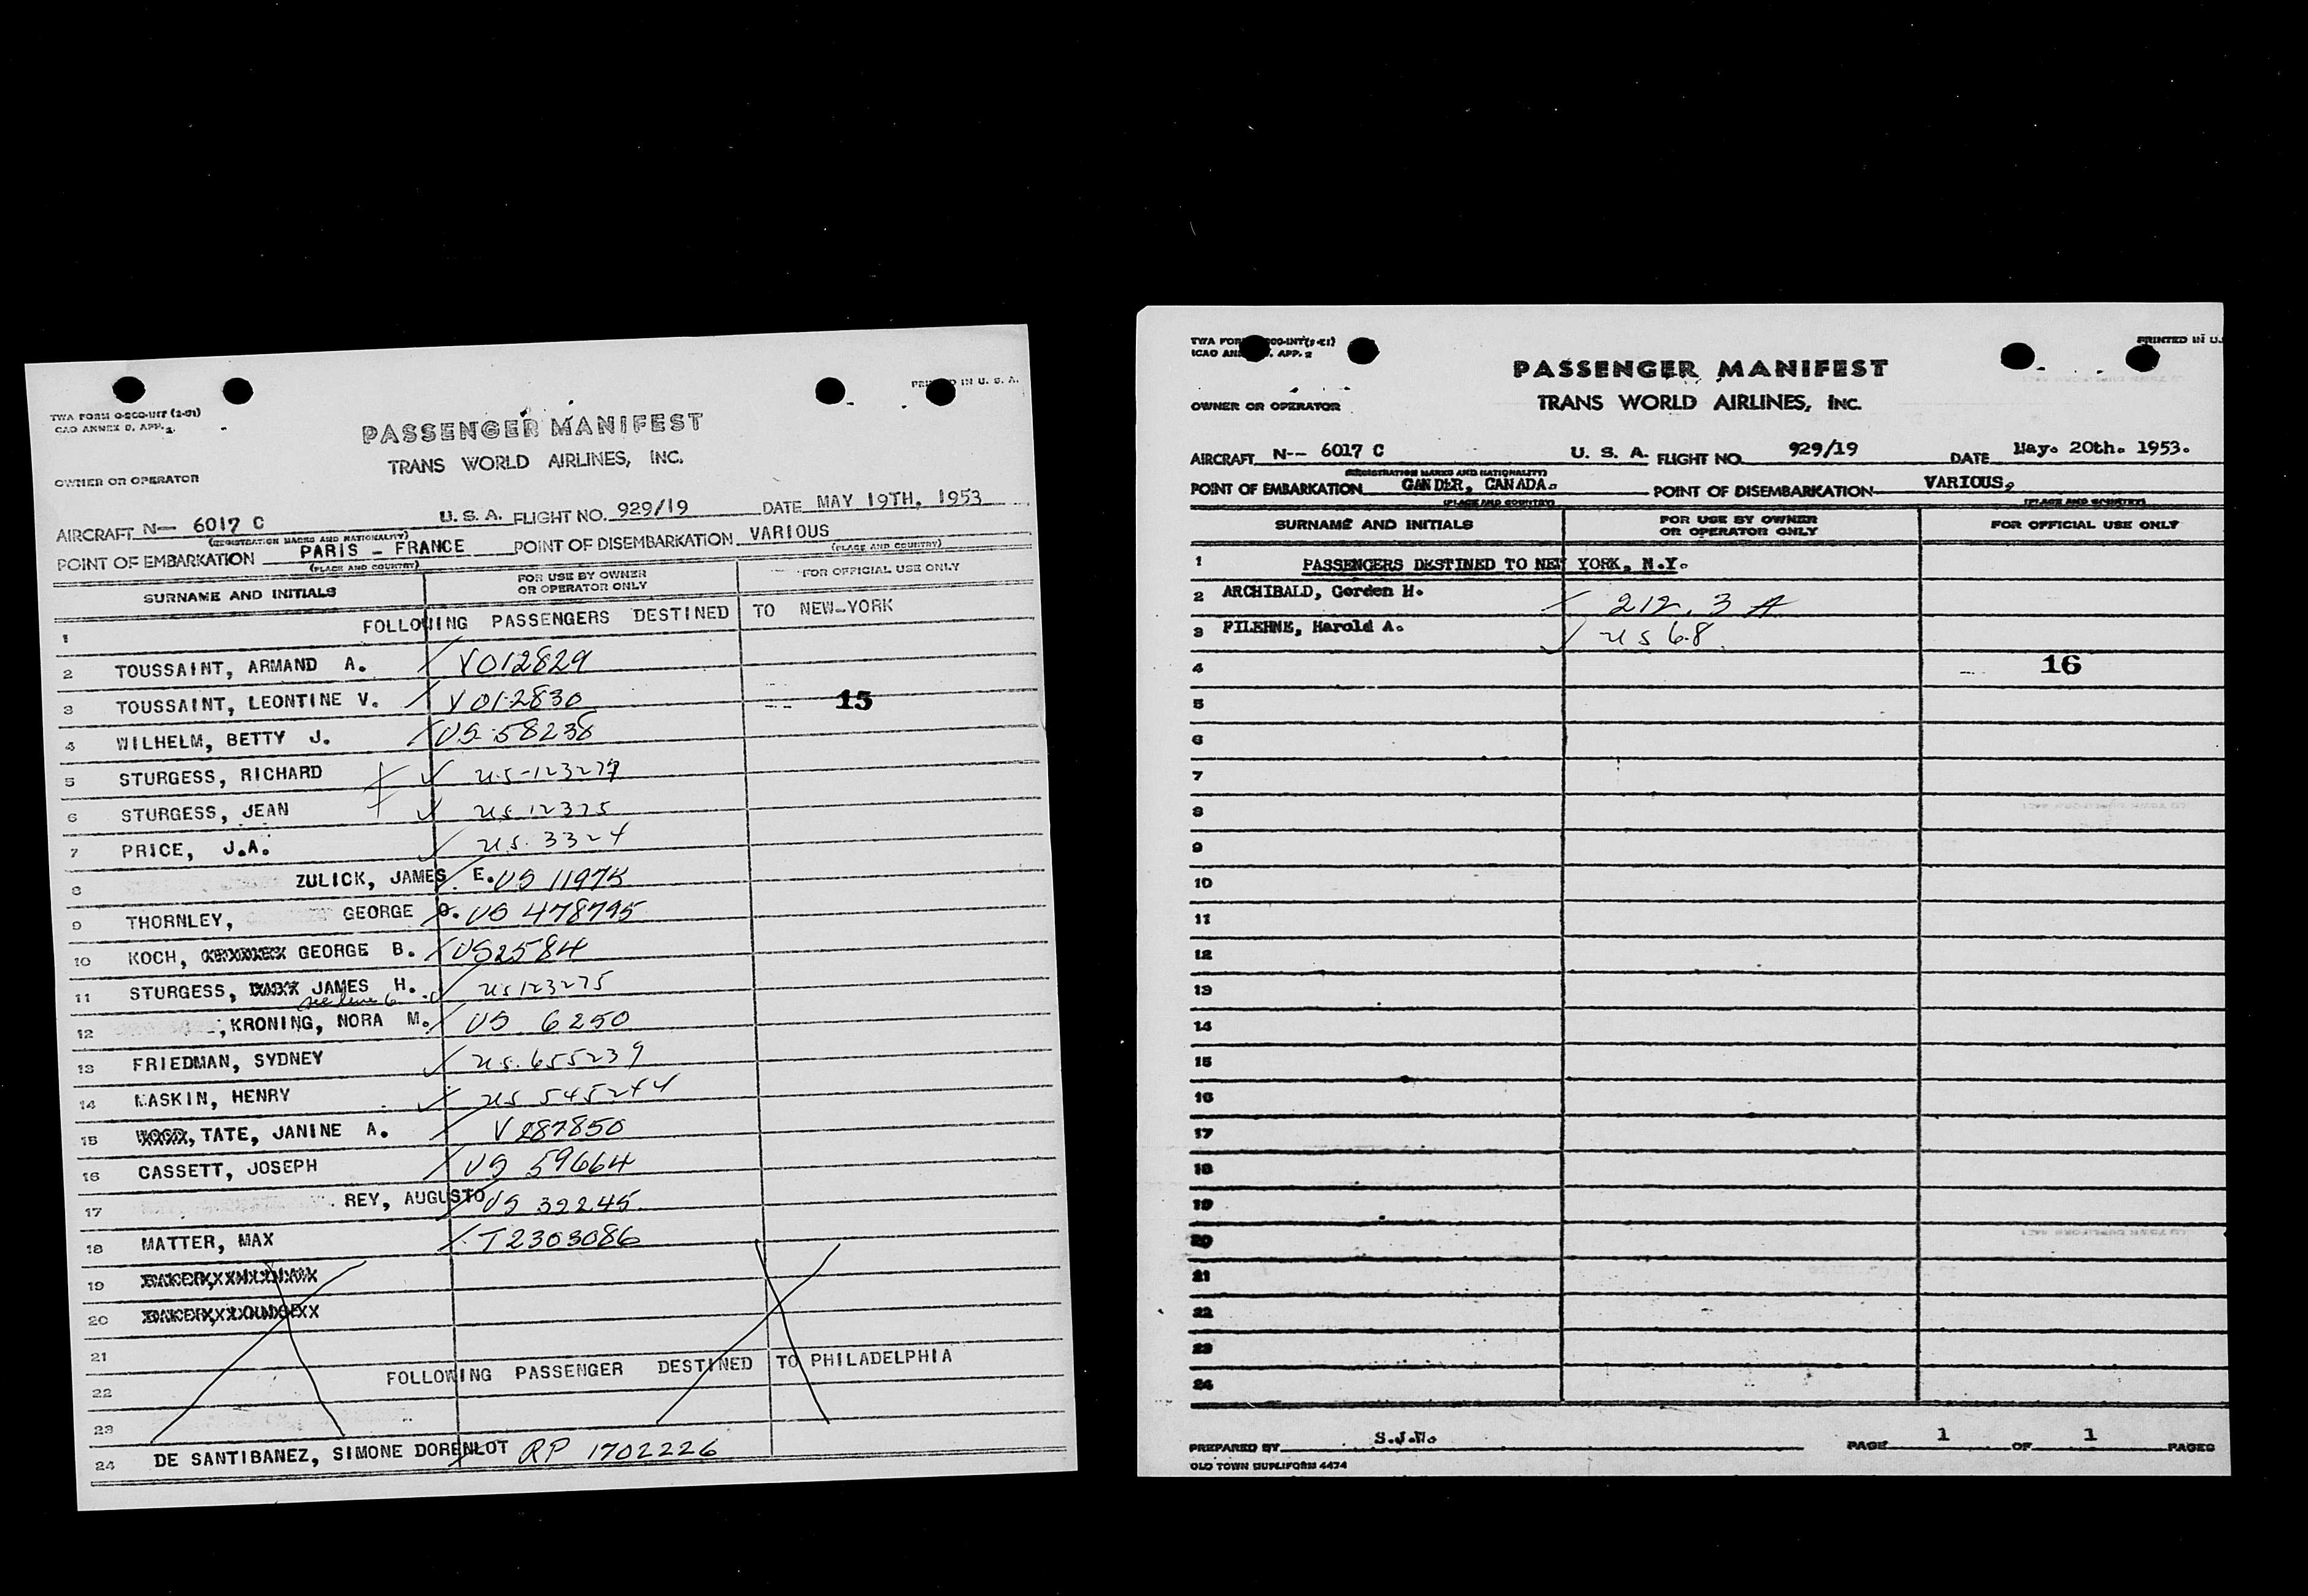 TWA FORM O-SCO-INT (2-51)
PRINTED IN U. S. A.
ICAO ANNEX 9, APP. 2
PASSENGER MANIFEST
TRANS WORLD AIRLINES, INC.
OWNER OR OPERATOR
AIRCRAFT N— 6017 C U. S. A. FLIGHT NO. 929/19 DATE MAY 19TH, 1953
(REGISTRATION MARKS AND NATIONALITY)
POINT OF EMBARKATION PARIS - FRANCE POINT OF DISEMBARKATION VARIOUS
(PLACE AND COUNTRY) (PLACE AND COUNTRY)
SURNAME AND INITIALS FOR USE BY OWNER OR OPERATOR ONLY FOR OFFICIAL USE ONLY
1 FOLLOWING PASSENGERS DESTINED TO NEW-YORK
2 TOUSSAINT, ARMAND A. V012829
3 TOUSSAINT, LEONTINE V. V012830 15
4 WILHELM, BETTY J. US 58238
5 STURGESS, RICHARD US-123277
6 STURGESS, JEAN US 12375
7 PRICE, J.A. US. 3324
8 ZULICK, JAMES E. US
9 THORNLEY, GEORGE O. US 478795
10 KOCH, GEORGE B. US2584
11 STURGESS, JAMES H. US123275
see line 6
12 , KRONING, NORA M. US 6250
13 FRIEDMAN, SYDNEY US. 655239
14 MASKIN, HENRY US 545244
15 TATE, JANINE A. V 287850
16 CASSETT, JOSEPH US 59664
17 REY, AUGUSTO US 39245
18 MATTER, MAX T2303086
19
20
21
FOLLOWING PASSENGER DESTINED TO PHILADELPHIA
22
23
24 DE SANTIBANEZ, SIMONE DORENLOT RP 1702226
TWA FORM O-SCO-INT (2-51)
PRINTED IN U.
ICAO ANNEX 9, APP. 2
PASSENGER MANIFEST
TRANS WORLD AIRLINES, INC.
OWNER OR OPERATOR
AIRCRAFT N-- 6017 C U. S. A. FLIGHT NO. 929/19 DATE May. 20th. 1953.
(REGISTRATION MARKS AND NATIONALITY)
POINT OF EMBARKATION GANDER, CANADA. POINT OF DISEMBARKATION VARIOUS,
(PLACE AND COUNTRY) (PLACE AND COUNTRY)
SURNAME AND INITIALS FOR USE BY OWNER OR OPERATOR ONLY FOR OFFICIAL USE ONLY
1 PASSENGERS DESTINED TO NEW YORK, N.Y.
2 ARCHIBALD, Gorden H. 212. 3 A
3 FILEHNE, Harold A. US 68
4 16
5
6
7
8
9
10
11
12
13
14
15
16
17
18
19
20
21
22
23
24
PREPARED BY PAGE 1 OF 1 PAGES
OLD TOWN DUPLIFORM 4474